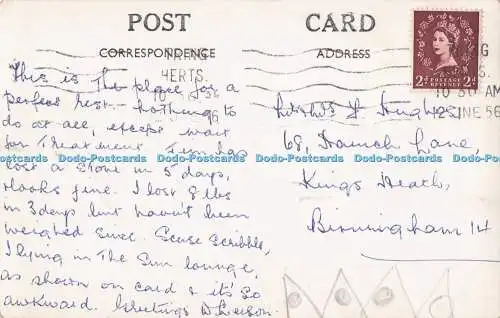 POST CARD
CORRESPONDENCE
ADDRESS
TRING
HERTS.
POSTAGE
REVENUE
2d 2d
10 30 AM
12 JNE 56
This is the place for a
perfect rest - nothing to
do at all, except wait
for Treatment. has
lost a stone in 5 days,
& looks fine. I lost 8 lbs
in 3 days but haven't been
weighed since. Scuse Scribble,
I lying in the Sun lounge,
as shown on card & it's so
awkward. Greetings
Hughes
68, Haunch Lane,
Kings Heath,
Birmingham 14
Dodo-Postcards Dodo-Postcards Dodo-Postcards Dodo-Postcards Dodo-Postcards